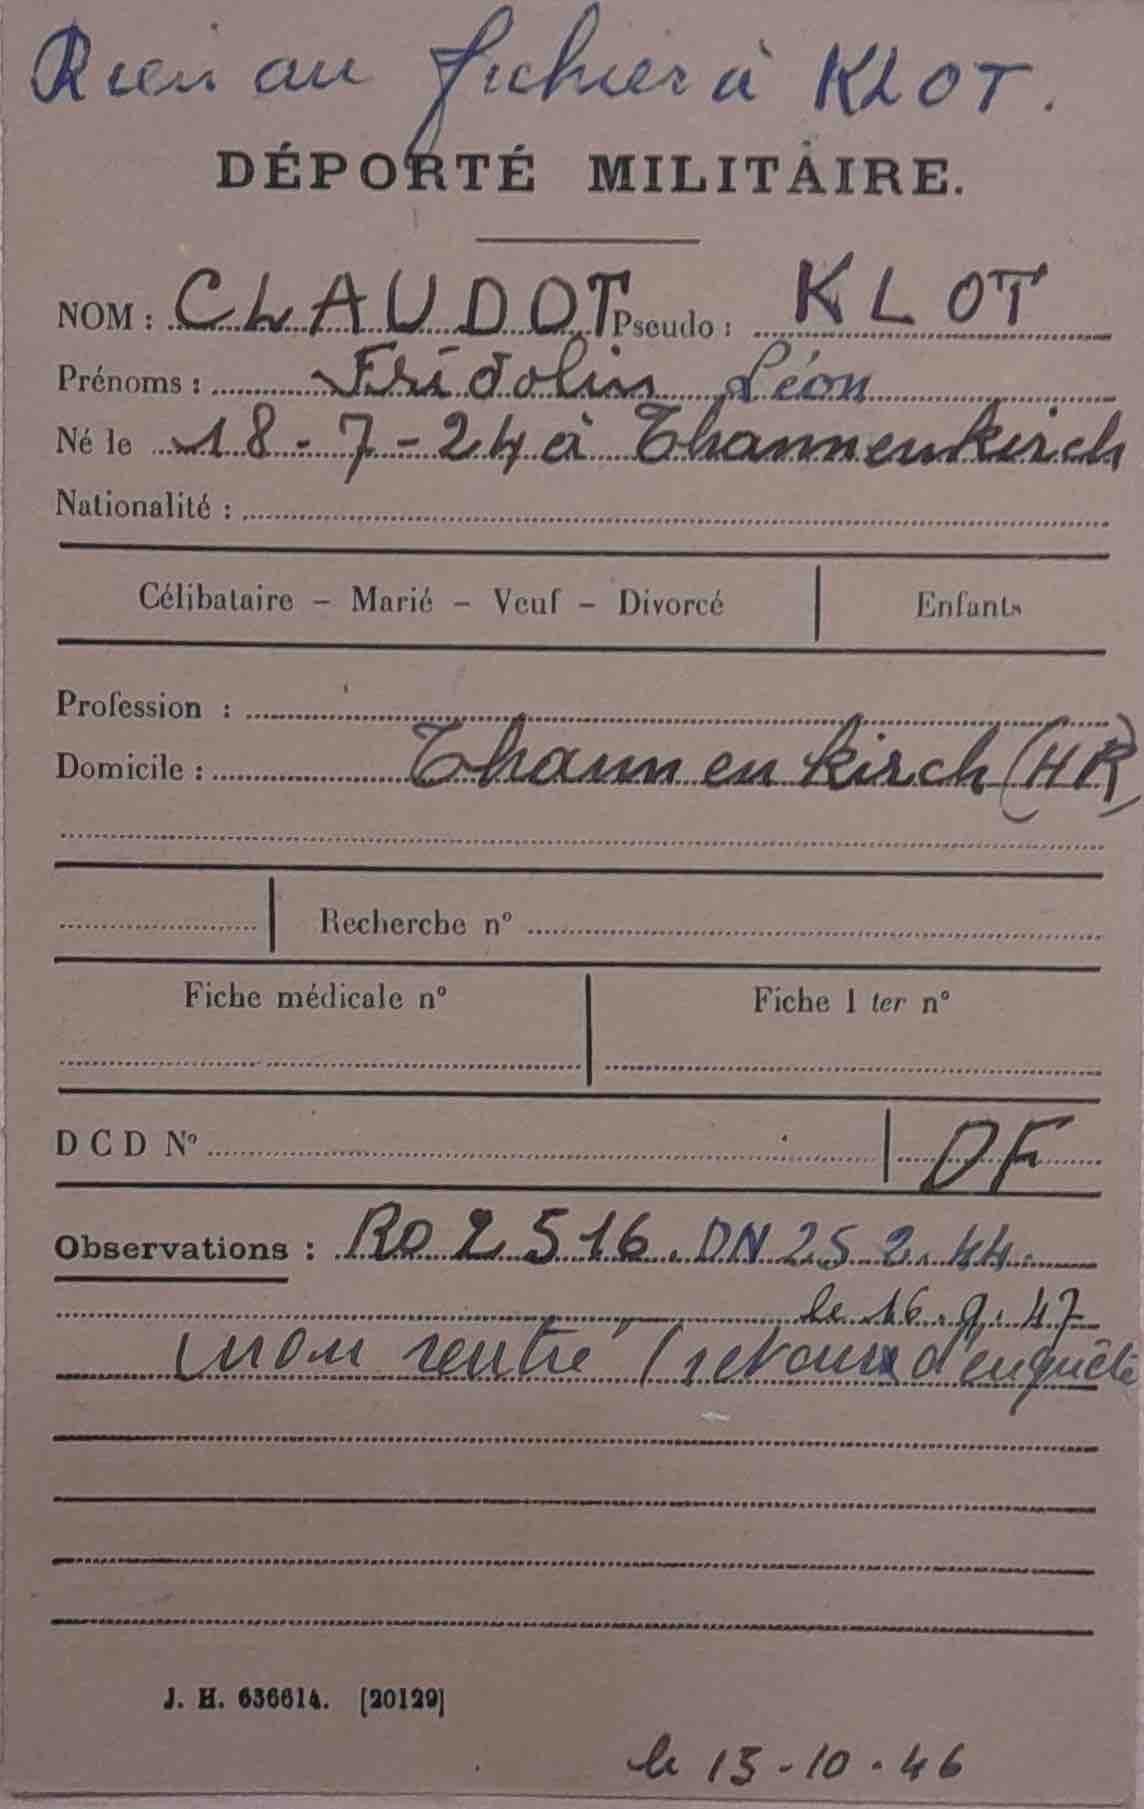 Rien au fichier à KLOT.
DÉPORTÉ MILITAIRE.
NOM : CLAUDOT Pseudo : KLOT
Prénoms : Fridolin Léon
Né le 18-7-24 à Thannenkirch
Nationalité :
Célibataire – Marié – Veuf – Divorcé Enfants
Profession :
Domicile : Thannenkirch (HR)
Recherche n°
Fiche médicale n° Fiche 1 ter n°
D C D N° DF
Observations : Ro 2516. DN 25 2. 44.
le 16. 9. 47
(non rentré (retour d'enquête
J. H. 636614. [20129]
le 13-10-46